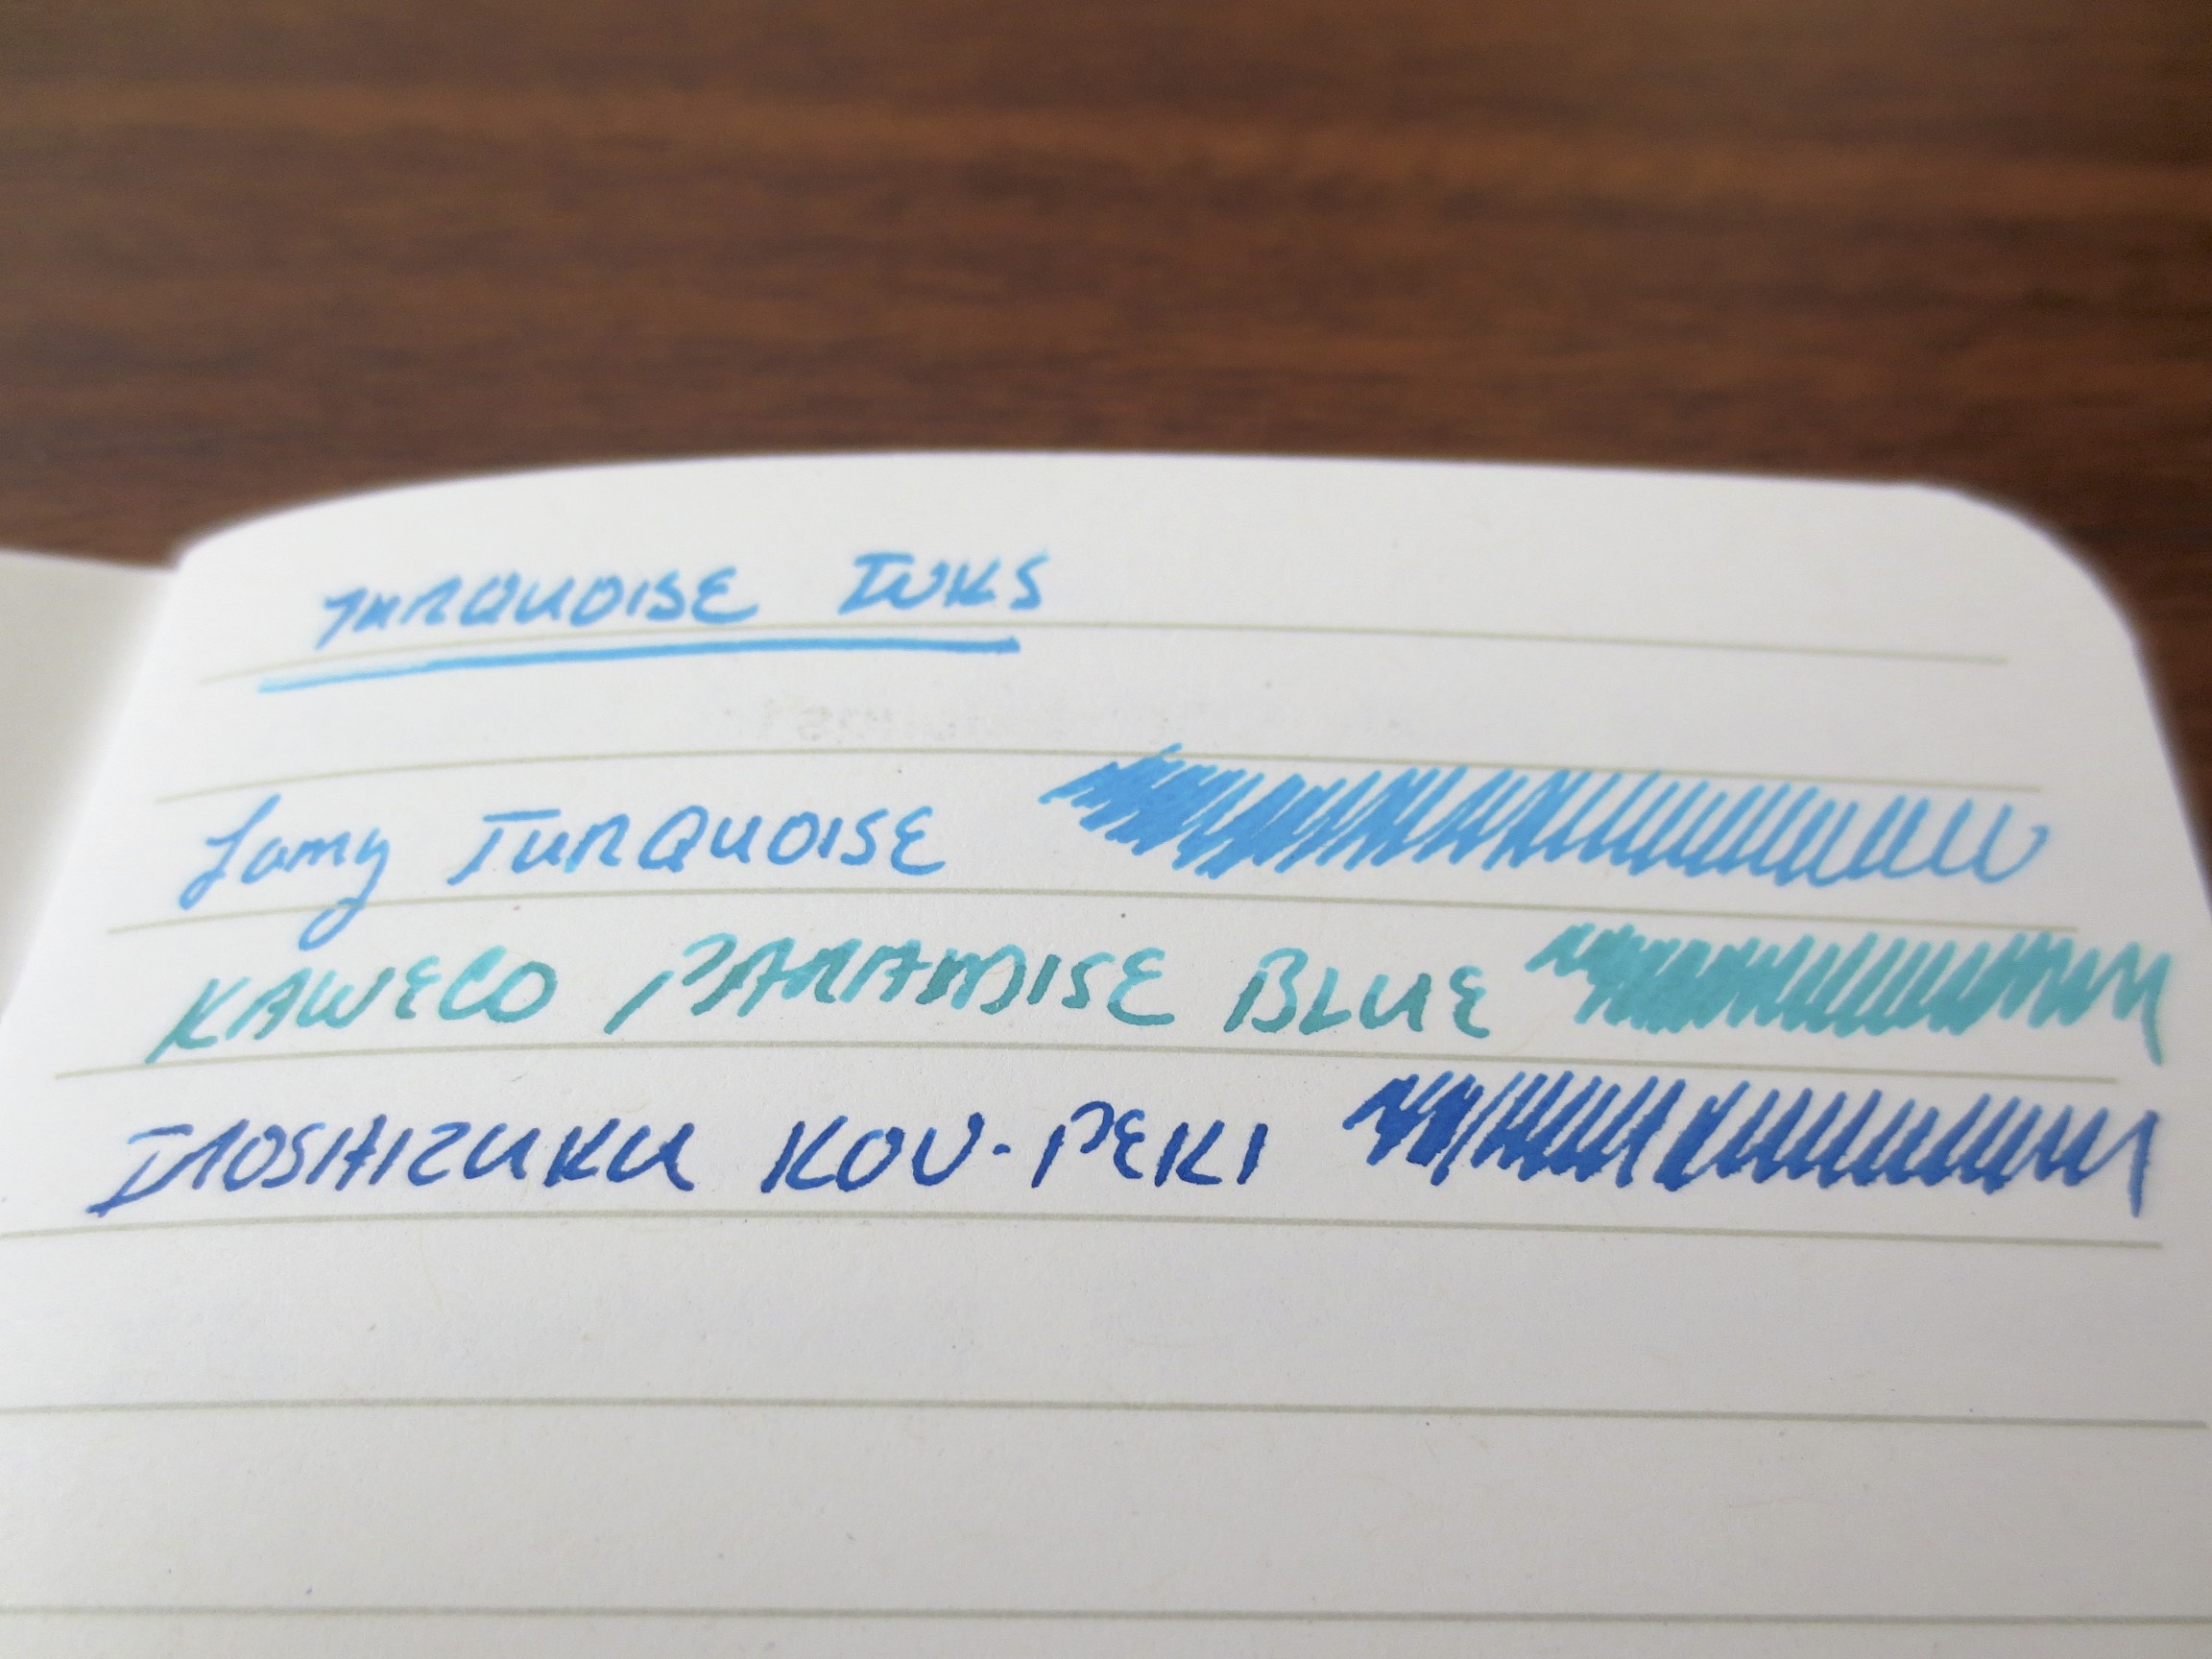 TURQUOISE INKS
Lamy TURQUOISE
KAWECO PARADISE BLUE
IROSHIZUKU KON-PEKI